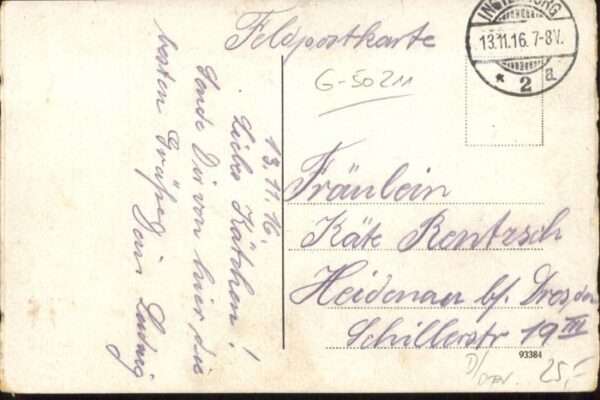 Feldpostkarte
G-50211
13.11.16. 7-8V.
* 2 a.
13.11.16.
Liebes Kätchen!
Sende Dir von hier die
besten Grüße
Dein Ludwig
Fräulein
Käte Rentzsch
Heidenau bf. Dresden
Schillerstr 19 III
93384
25,-